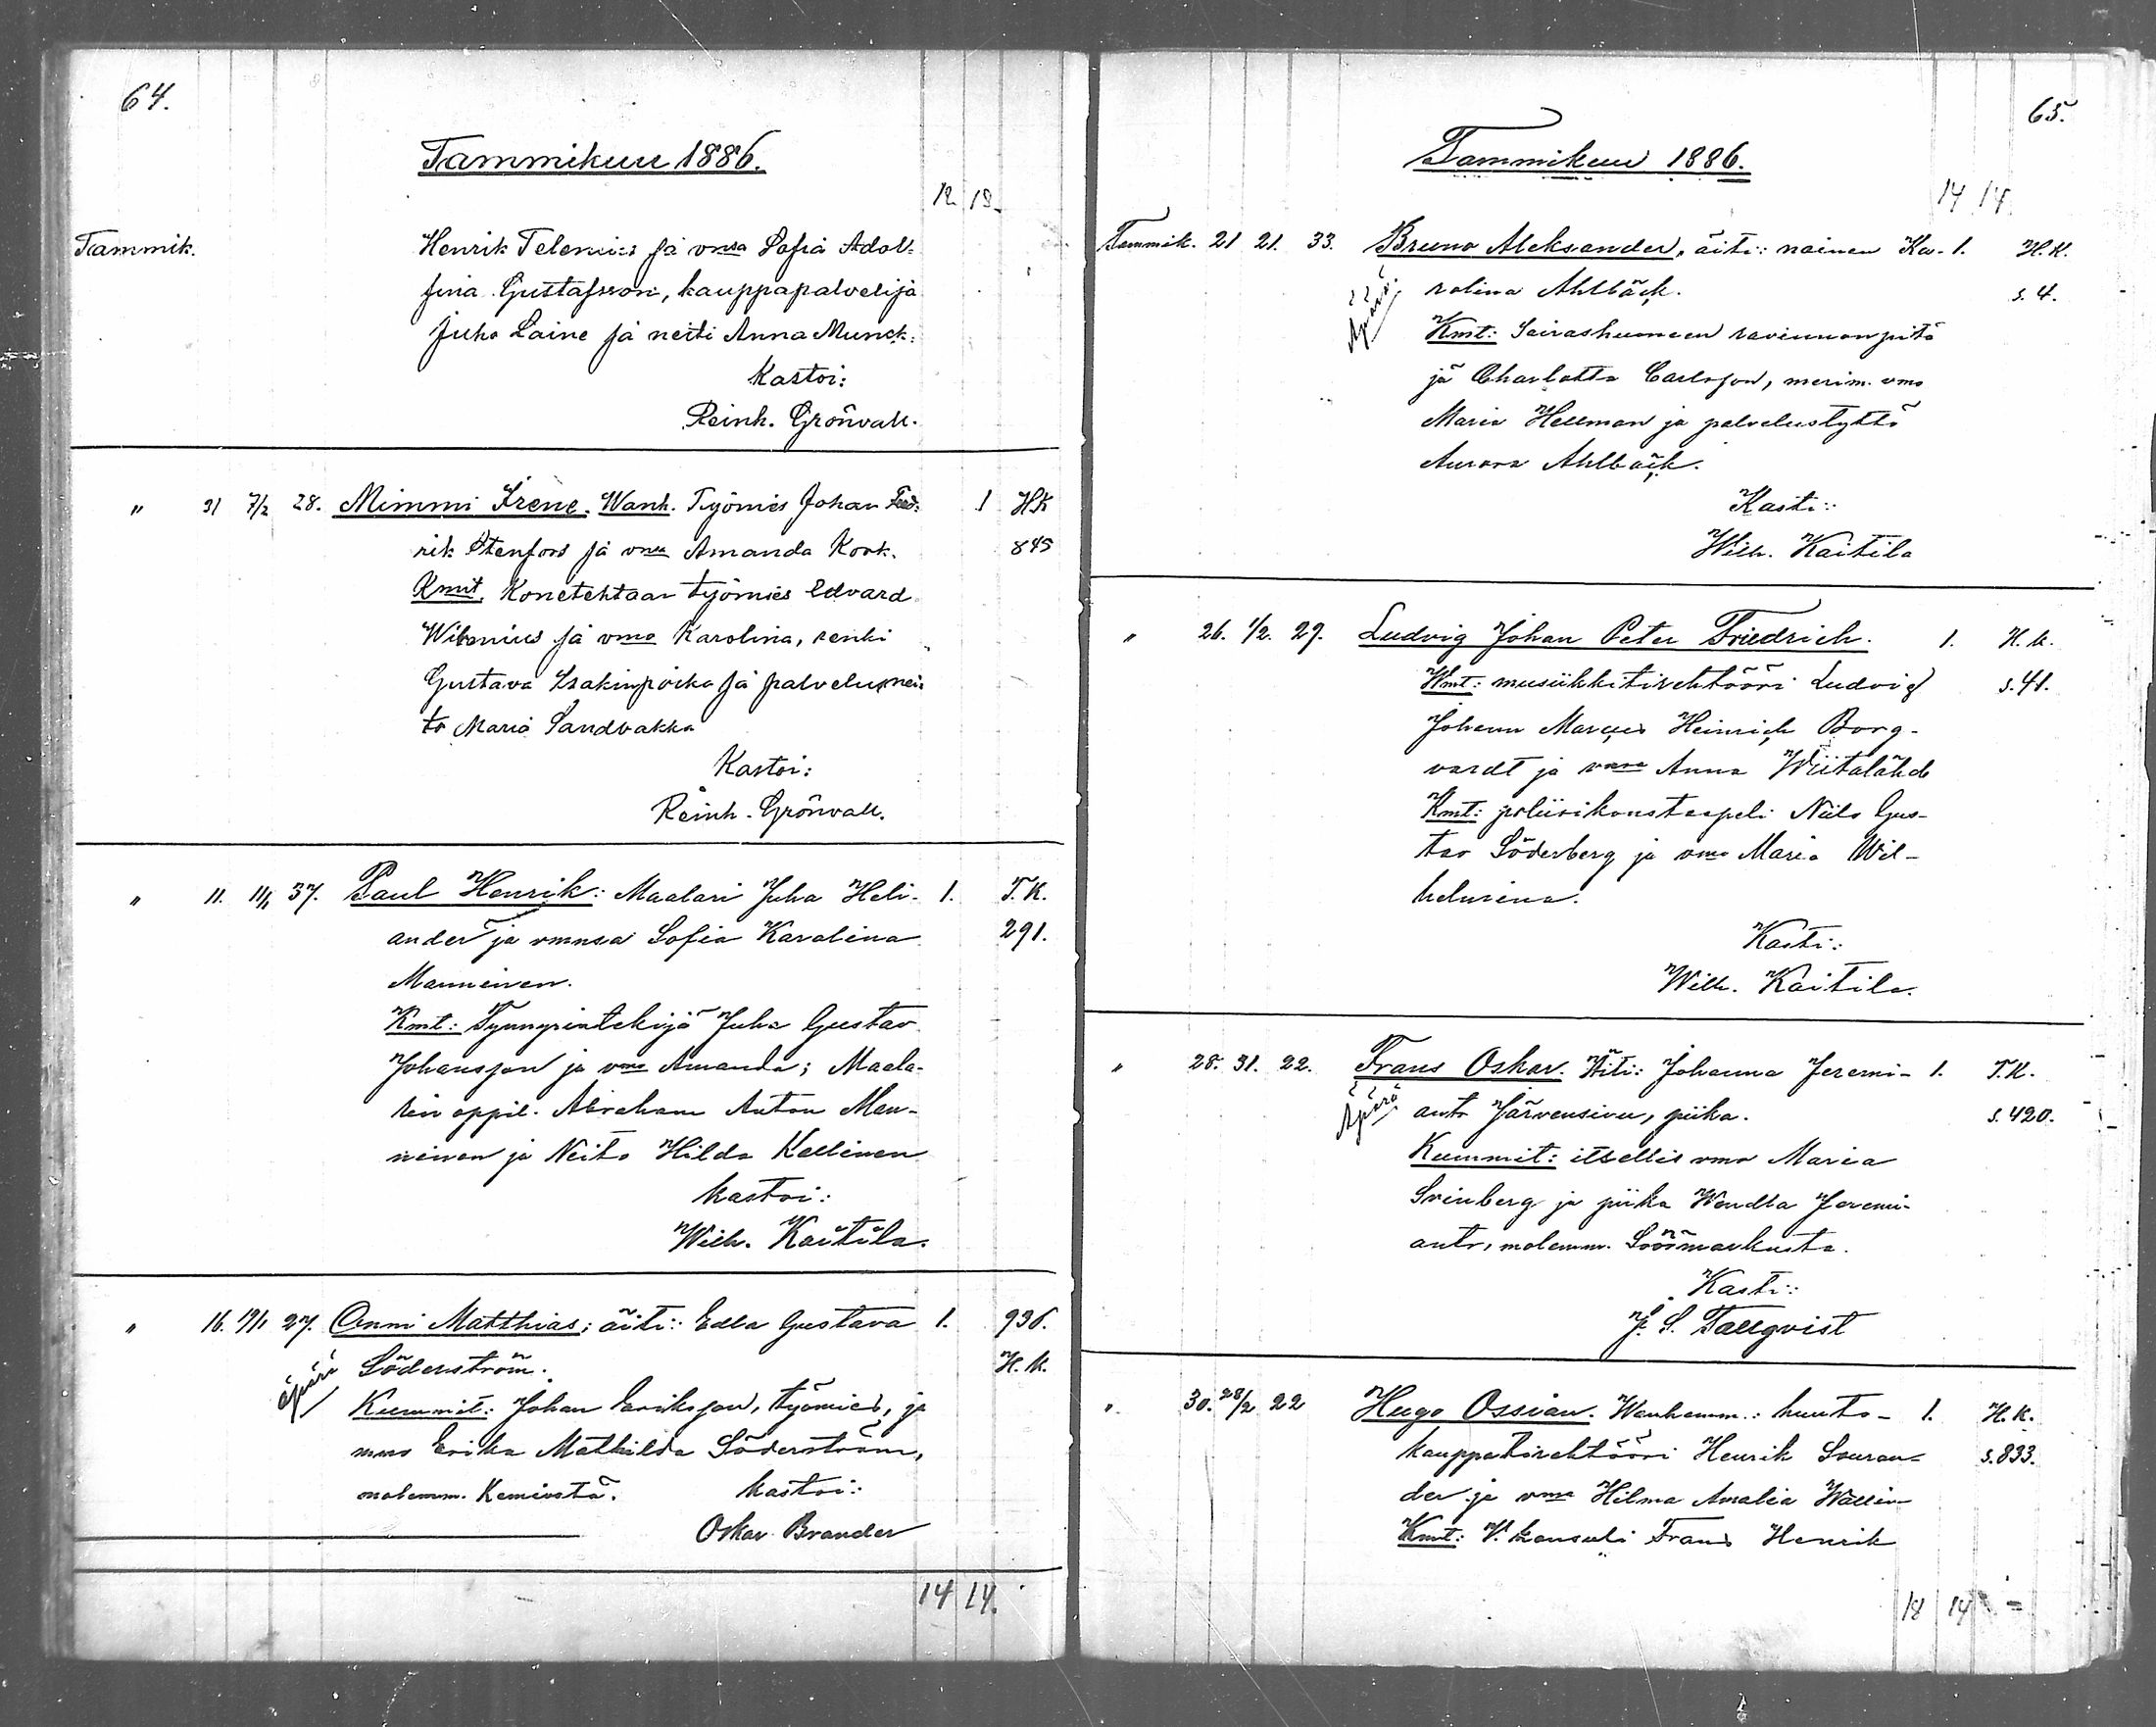 64.
Tammikuu 1886.
12 13
Tammik. Henrik Telenius ja vmsa Sofia Adol-
fina Gustafsson, kauppapalvelija
Juho Laine ja neiti Anna Munck.
Kastoi:
Reinh. Grönvall.
" 31 7/2 28. Mimmi Irene. Wanh. Työmies Johan Fred- 1 H.K
rik Stenfors ja vmsa Amanda Kook. 845
Kmit. Konetehtaan työmies Edvard
Wilenius ja vmo Karolina, renki
Gustava Isakinpoika ja palvelusnei-
to Maria Sandbakka
Kastoi:
Reinh. Grönvall.
" 11. 11/1 37. Paul Henrik: Maalari Juha Heli- 1. T.K.
ander ja vmnsa Sofia Karolina 291.
Manninen.
Kmt: Tynnyrintekijä Juha Gustav
Johansson ja vmo Amanda; Maala-
rin oppil. Abraham Anton Man-
ninen ja Neito Hilda Kallinen
Kastoi:
Wilh. Kaitila.
" 16. 19/1 27. Onni Matthias; äiti: Edla Gustava 1. 936.
Äpärä Söderström. H.K.
Kummit: Johan Eriksson, työmies, ja
mmo Erika Mathilda Söderström,
molemm. Kemiöstä. Kastoi:
Oskar Brander
14 14.
65.
Tammikuu 1886.
14 14
Tammik. 21 21. 33. Bruno Aleksander. äiti: nainen Ka- 1. H.K.
Äpärä. rolina Ahlbäck. s. 4.
Kmt: Sairashuoneen ravinnonpitä
jä Charlotta Carlsson, merim. vmo
Maria Hellman ja palvelustyttö
Aurora Ahlbäck.
Kasti:
Wilh. Kaitila
" 26. 1/2. 29. Ludvig Johan Peter Friedrich. 1. H.K.
Wmt: musiikkitirehtööri Ludvig s. 41.
Johann Marcus Heinrich Borg-
vardt ja vmsa Anna Wiitalähde
Kmt: poliisikonstaapeli Niilo Gus-
tav Söderberg ja vmo Maria Wil-
helmina.
Kasti:
Wilh. Kaitila.
" 28. 31. 22. Frans Oskar. Äiti: Johanna Jeremi- 1. T.K.
Äpärä antr Järvensivu, piika. s. 420.
Kummit: itsellis vmo Maria
Svinberg ja piika Wendla Jeremi-
antr, molemm. Söörmarkusta.
Kasti:
J. S. Tallqvist
" 30. 28/2 22 Hugo Ossian. Wanhemm.: huuto- 1. H.K.
kauppatirehtööri Henrik Souran- s. 833.
der ja vmsa Hilma Amalia Wallin
Kmt: V. konsuli Frans Henrik
18 14